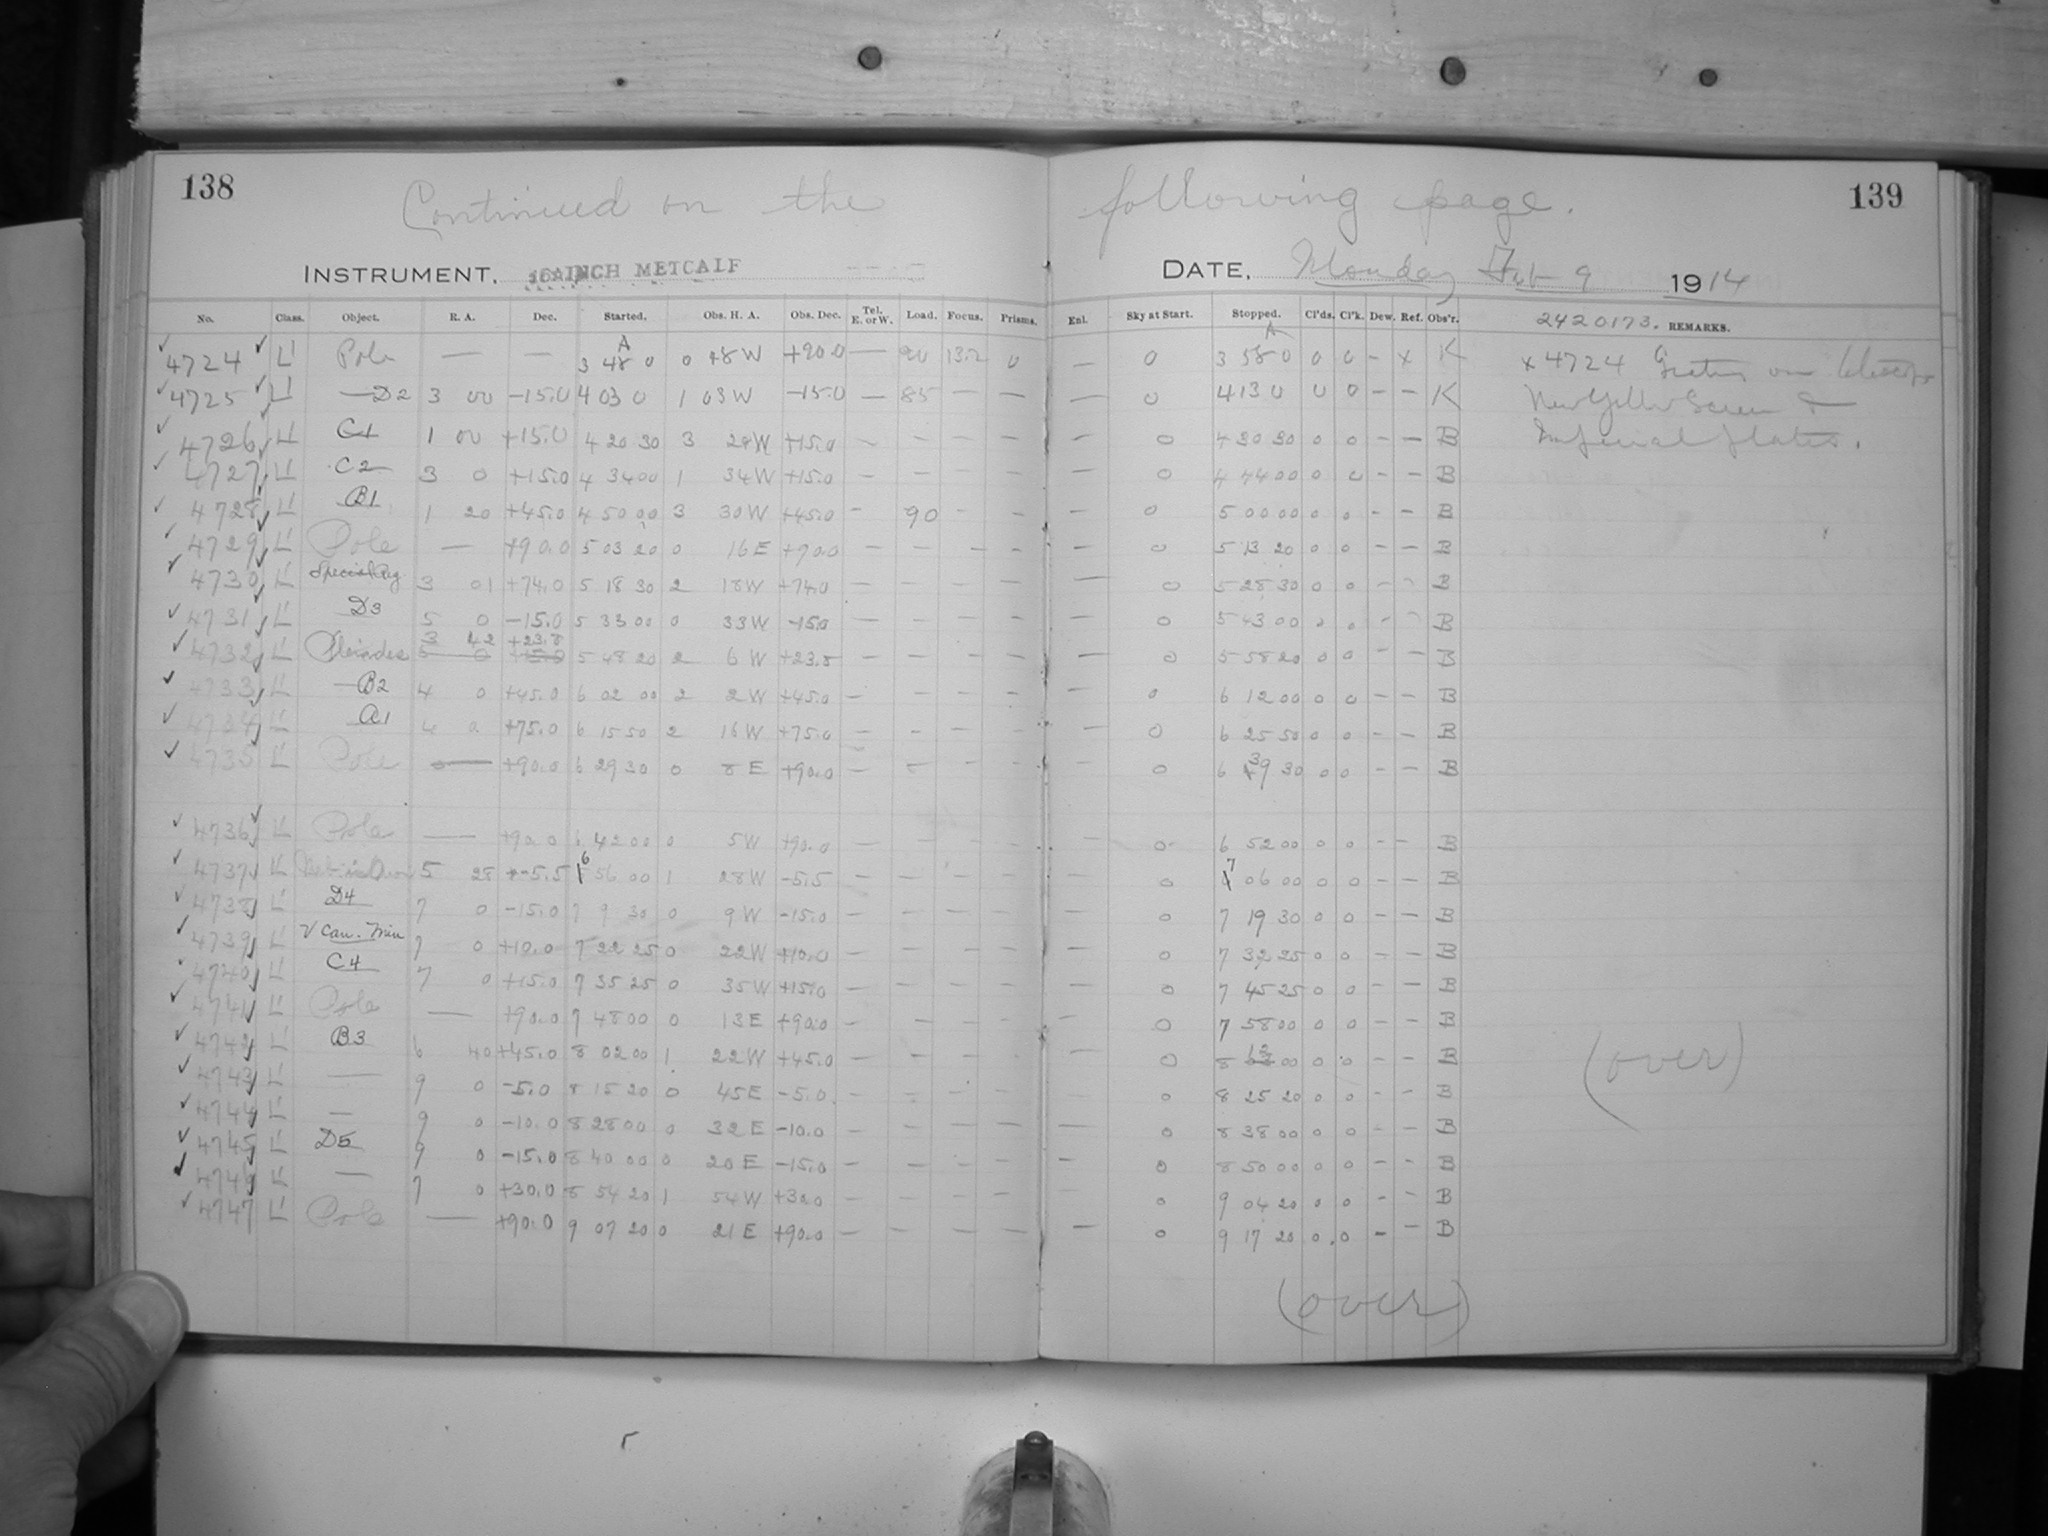 138
Continued on the following page.
139
INSTRUMENT, 16-INCH METCALF
DATE, Monday Feb 9 1914
No. Class. Object. R. A. Dec. Started. Obs. H. A. Obs. Dec. Tel. E. or W. Load. Focus. Prisms. Enl. Sky at Start. Stopped. Cl'ds. Cl'k. Dew. Ref. Obs'r. 2420173. REMARKS.
A A
4724 L Pole — — 3 48 0 0 48 W +90.0 — 90 13.2 0 — 0 3 58 0 0 0 - x K x 4724
4725 L D2 3 00 -15.0 4 03 0 1 03 W -15.0 — 85 — — — 0 4 13 0 0 0 - - K New Yellow Screen &
4726 L C1 1 00 +15.0 4 20 30 3 24 W +15.0 — — — — — 0 4 30 30 0 0 - - B Imperial plates.
4727 L C2 3 0 +15.0 4 34 00 1 34 W +15.0 — — — — — 0 4 44 00 0 0 - - B
4728 L B1 1 20 +45.0 4 50 00 3 30 W +45.0 - 90 - - — 0 5 00 00 0 0 - - B
4729 L Pole — +90.0 5 03 20 0 16 E +90.0 — — — — — 0 5 13 20 0 0 - - B
4730 L Special Reg 3 01 +74.0 5 18 30 2 18 W +74.0 — — — — — 0 5 28 30 0 0 - - B
4731 L D3 5 0 -15.0 5 33 00 0 33 W -15.0 — — — — — 0 5 43 00 0 0 - - B
4732 L Pleiades 3 42 +23.8 5 48 20 2 6 W +23.8 — — — — — 0 5 58 20 0 0 - - B
4733 L B2 4 0 +45.0 6 02 00 2 2 W +45.0 — — — — 0 6 12 00 0 0 - - B
4734 L A1 4 0 +75.0 6 15 50 2 16 W +75.0 — - - - — — 0 6 25 50 0 0 - - B
4735 L Pole — +90.0 6 29 30 0 8 E +90.0 — - — — — — 0 6 39 30 0 0 - - B
4736 L Pole — +90.0 6 42 00 0 5 W +90.0 — — — — — 0 6 52 00 0 0 - - B
4737 L 5 28 -5.5 6 56 00 1 28 W -5.5 — — — — — 0 7 06 00 0 0 - - B
4738 L D4 7 0 -15.0 7 9 30 0 9 W -15.0 — — — — — 0 7 19 30 0 0 - - B
4739 L V Can. Min 7 0 +10.0 7 22 25 0 22 W +10.0 — — — — — 0 7 32 25 0 0 - - B
4740 L C4 7 0 +15.0 7 35 25 0 35 W +15.0 — — — — — 0 7 45 25 0 0 - - B
4741 L Pole — +90.0 7 48 00 0 13 E +90.0 — — — — — 0 7 58 00 0 0 - - B
4742 L B3 6 40 +45.0 8 02 00 1 22 W +45.0 — — — — — 0 8 12 00 0 0 - - B
4743 L — 9 0 -5.0 8 15 20 0 45 E -5.0 — — — — — 0 8 25 20 0 0 - - B
(over)
4744 L — 9 0 -10.0 8 28 00 0 32 E -10.0 — — — — — 0 8 38 00 0 0 - - B
4745 L D5 9 0 -15.0 8 40 00 0 20 E -15.0 — — — — — 0 8 50 00 0 0 - - B
4746 L — 7 0 +30.0 8 54 20 1 54 W +30.0 — — — — — 0 9 04 20 0 0 - - B
4747 L Pole — +90.0 9 07 20 0 21 E +90.0 — — — — — 0 9 17 20 0 0 - - B
(over)